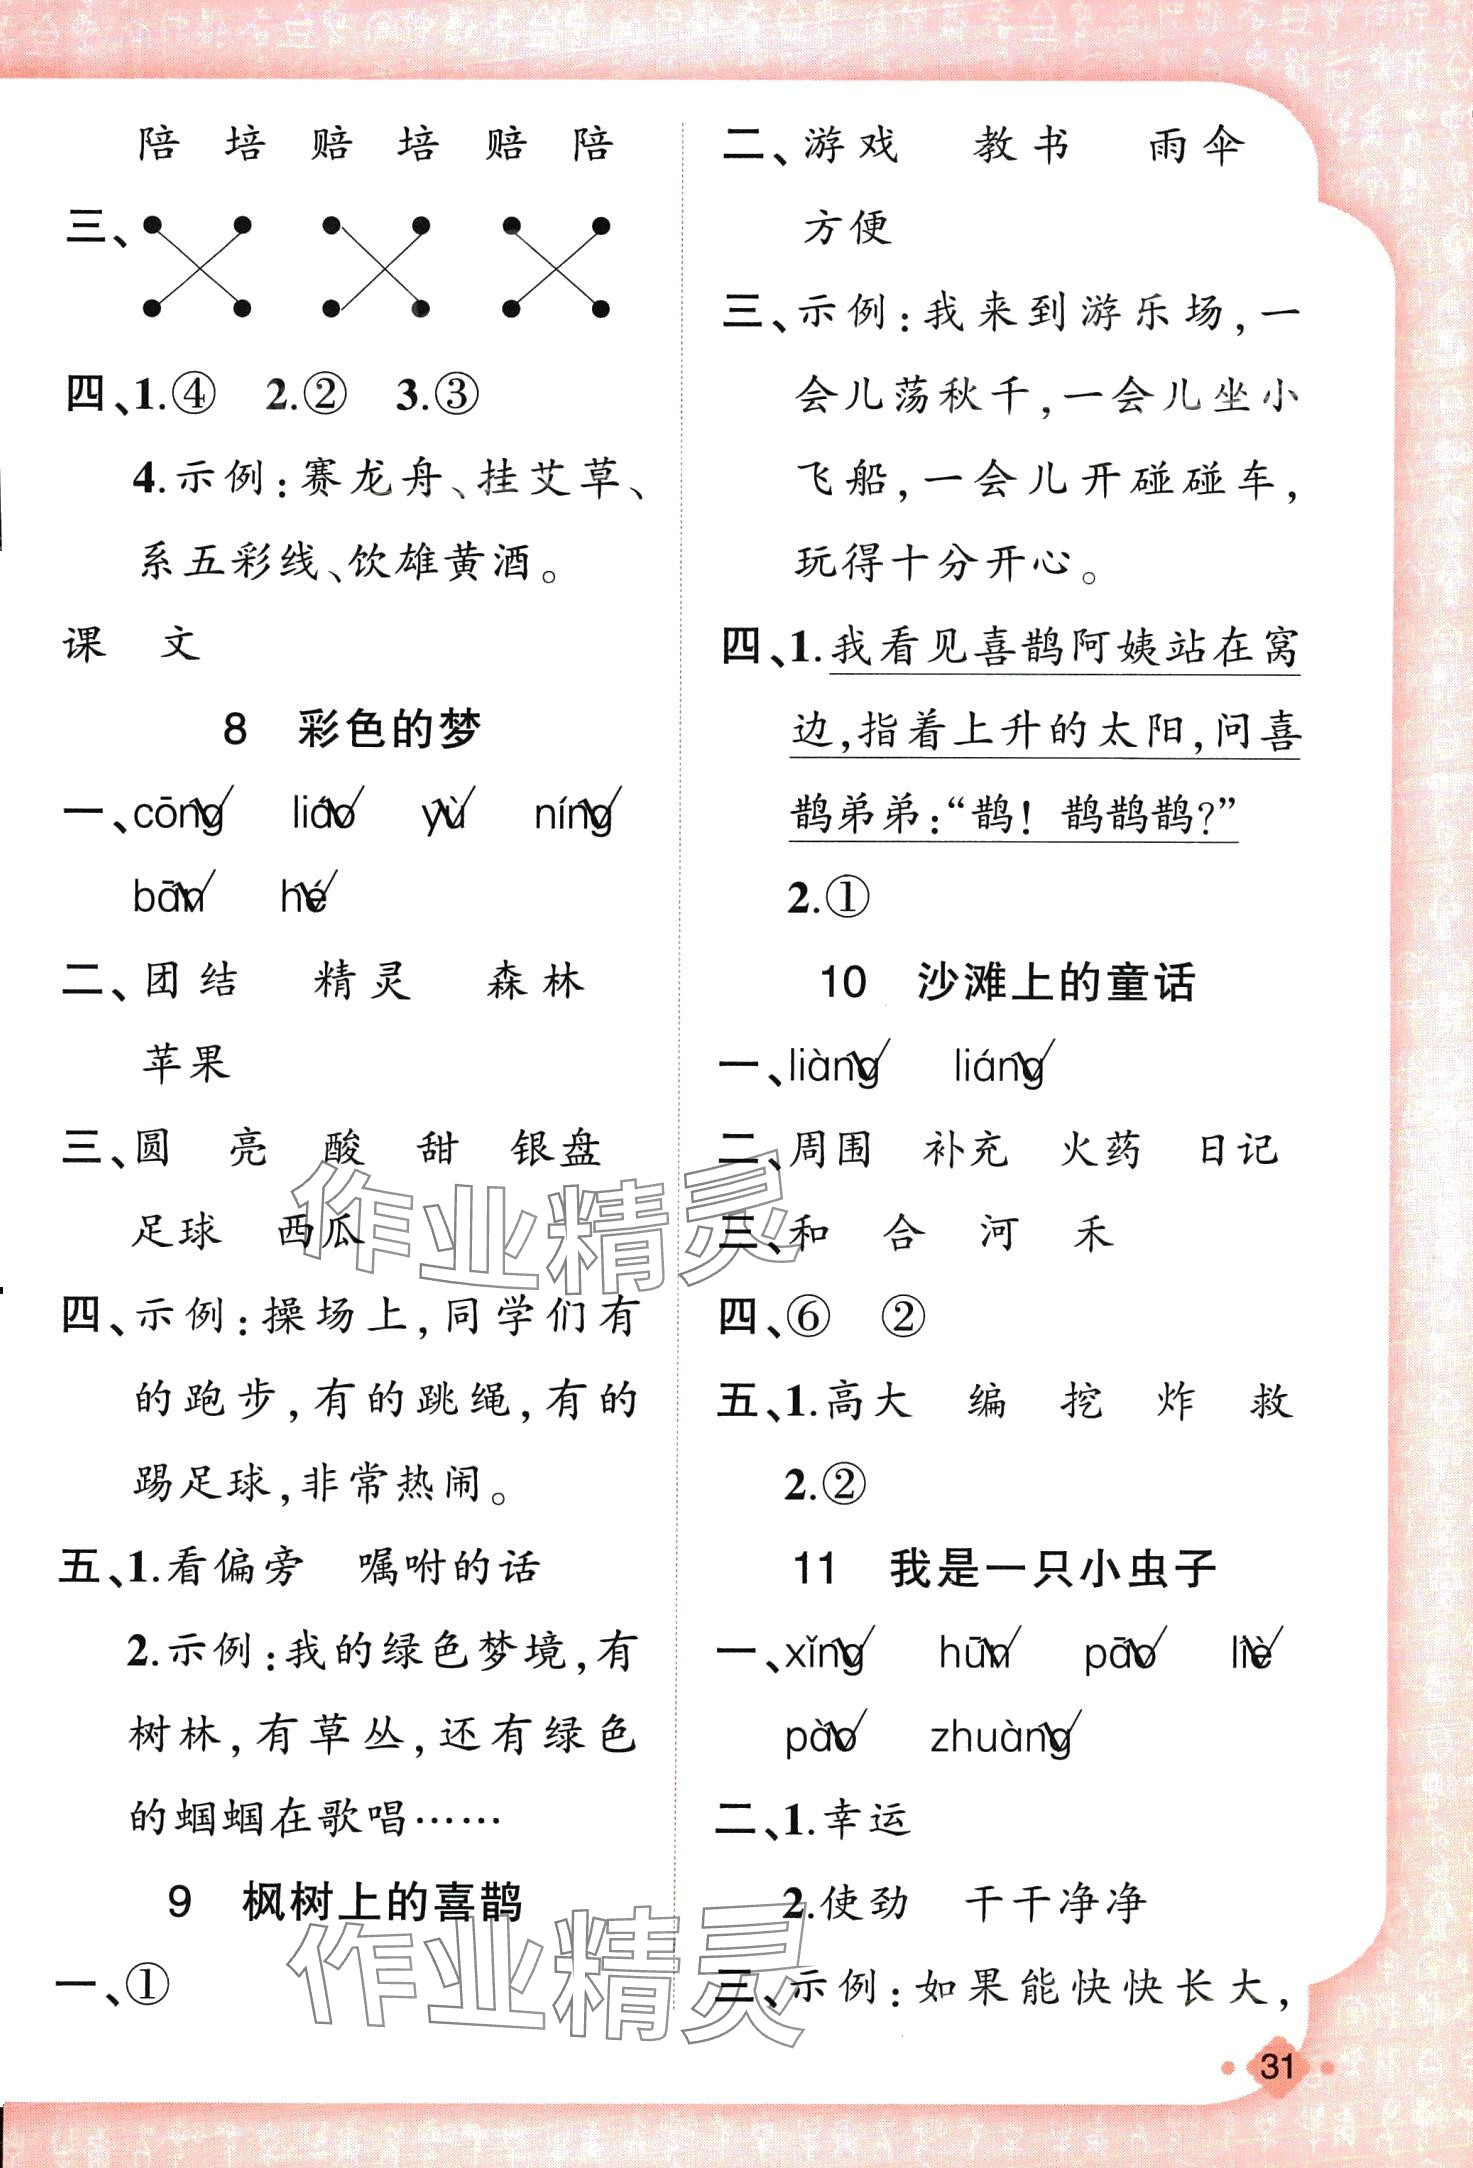 陪 培 赔 培 赔 陪
三、
四、1.④ 2.② 3.③
4.示例:赛龙舟、挂艾草、
系五彩线、饮雄黄酒。
课 文
8 彩色的梦
一、cōng✓ liáo✓ yù✓ níng✓
bān✓ hé✓
二、团结 精灵 森林
苹果
三、圆 亮 酸 甜 银盘
足球 西瓜
四、示例:操场上,同学们有
的跑步,有的跳绳,有的
踢足球,非常热闹。
五、1.看偏旁 嘱咐的话
2.示例:我的绿色梦境,有
树林,有草丛,还有绿色
的蝈蝈在歌唱……
9 枫树上的喜鹊
一、①
二、游戏 教书 雨伞
方便
三、示例:我来到游乐场,一
会儿荡秋千,一会儿坐小
飞船,一会儿开碰碰车,
玩得十分开心。
四、1.我看见喜鹊阿姨站在窝
边,指着上升的太阳,问喜
鹊弟弟:“鹊! 鹊鹊鹊?”
2.①
10 沙滩上的童话
一、liàng✓ liáng✓
二、周围 补充 火药 日记
三、和 合 河 禾
四、⑥ ②
五、1.高大 编 挖 炸 救
2.②
11 我是一只小虫子
一、xǐng✓ hūn✓ pāo✓ liè✓
pào✓ zhuàng✓
二、1.幸运
2.使劲 干干净净
三、示例:如果能快快长大,
31
作业精灵
作业精灵